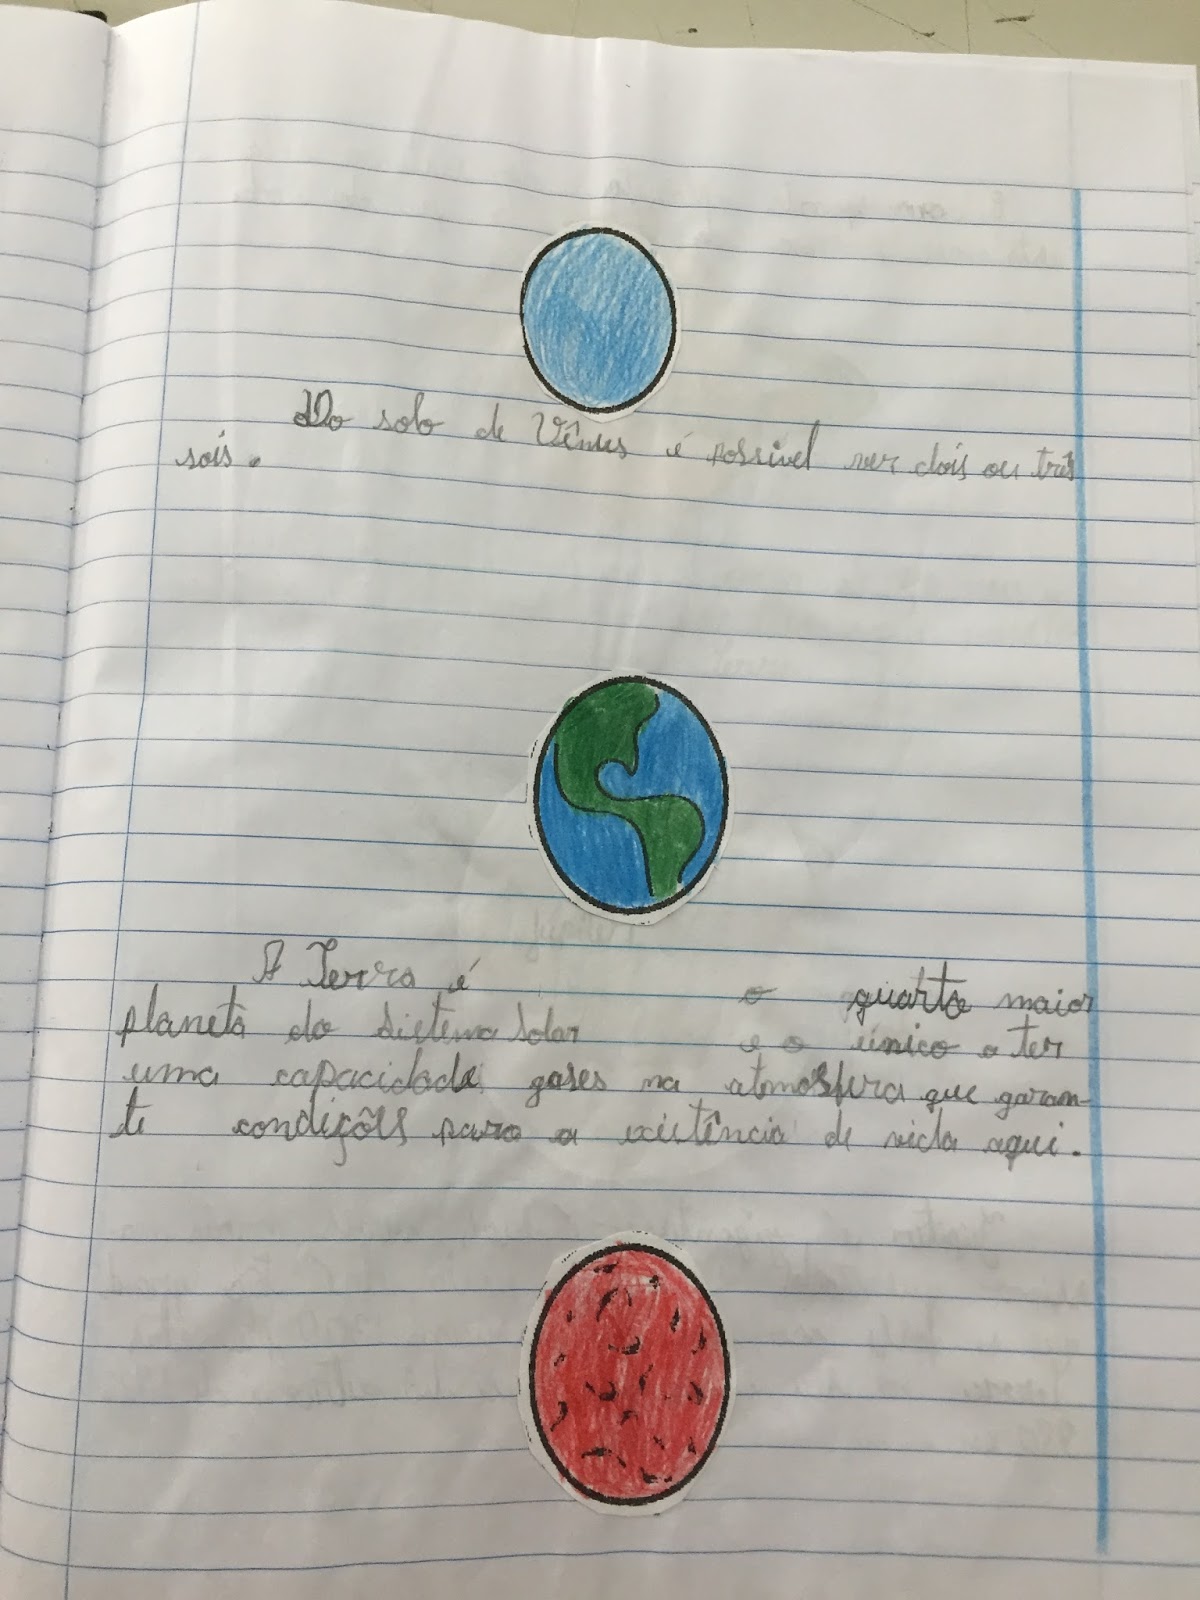 Do solo de Vênus é possivel ver dois ou três
sois.
A Terra é o quarto maior
planeta do sistema solar e o único a ter
uma capacidade gases na atmosfera que garan-
te condições para a existência de vida aqui.